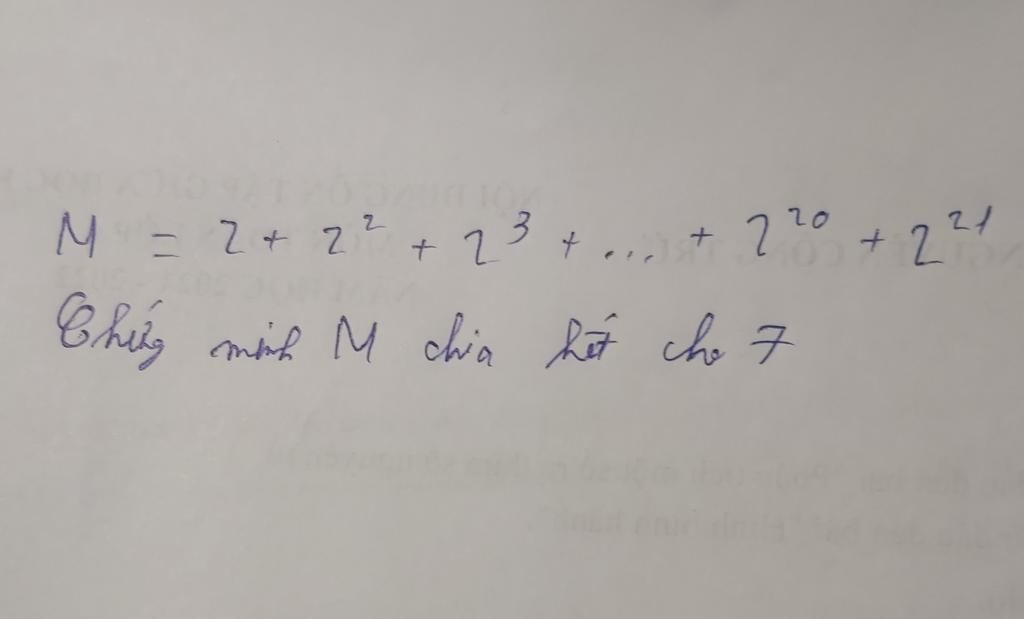 M = 2 + 2² + 2³ + ... + 2²⁰ + 2²¹
Chứng minh M chia hết cho 7